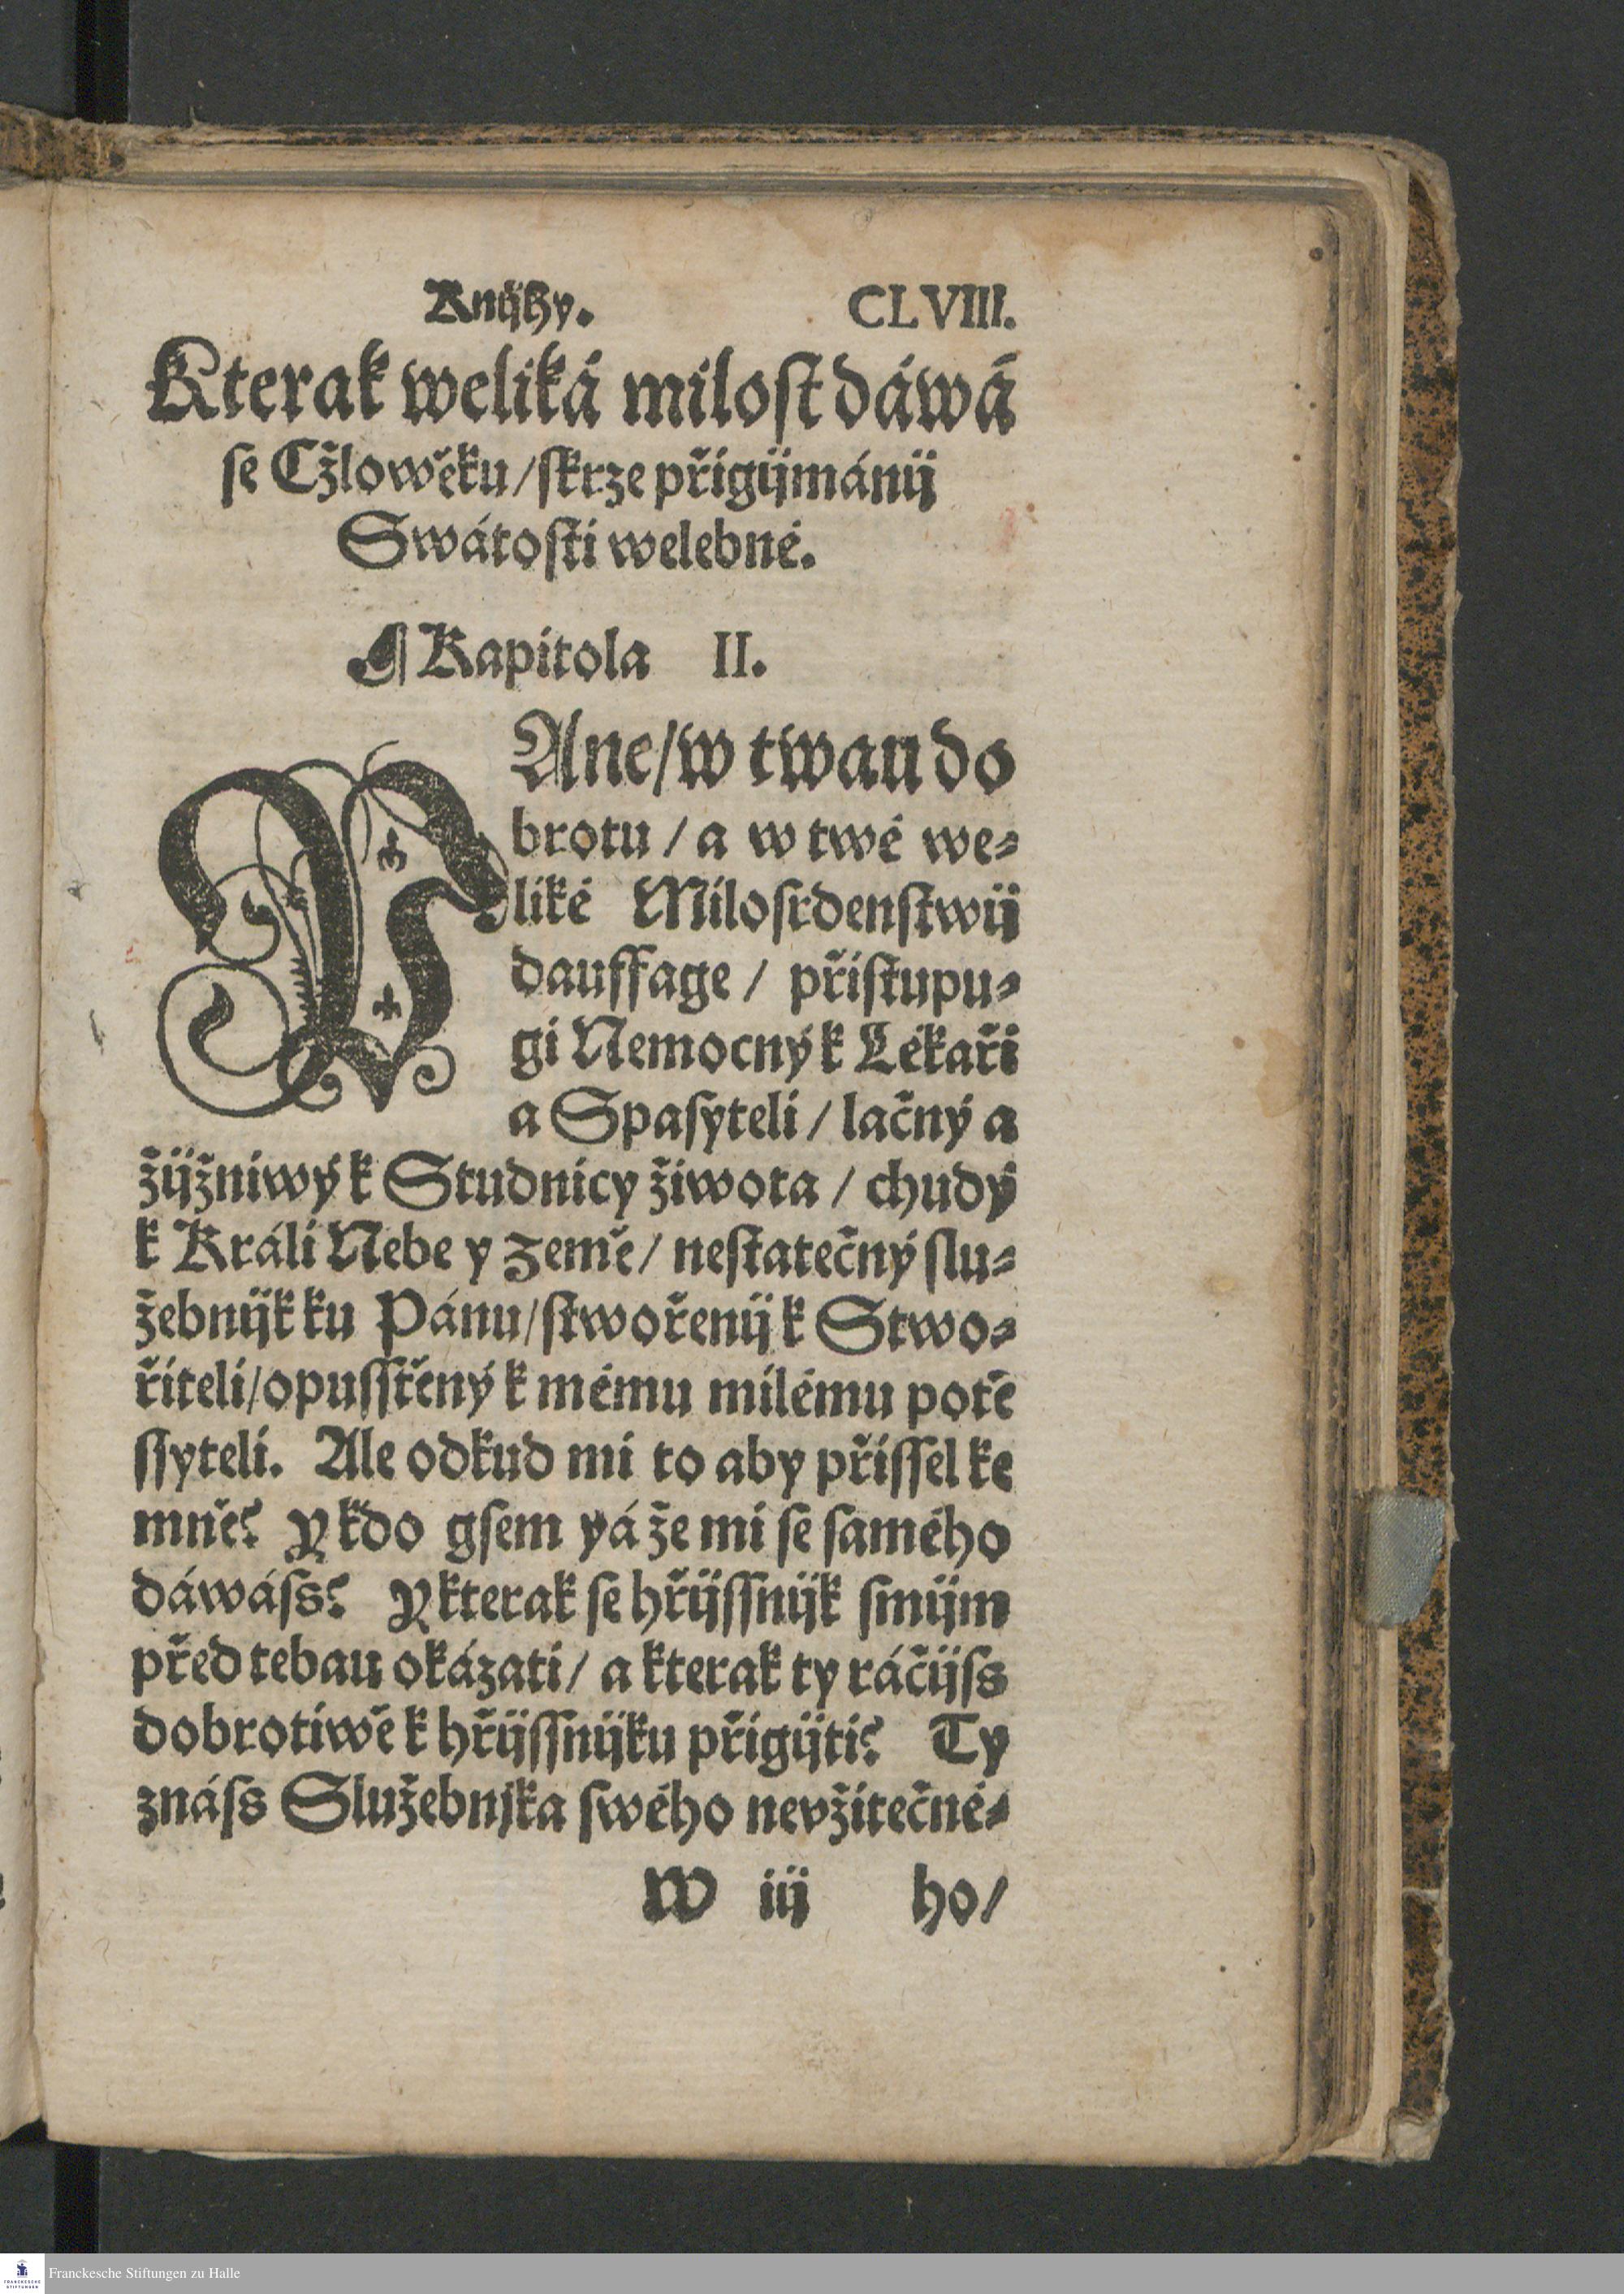 Knijhy. CLVIII.
Kterak weliká milost dáwá
se Cžlowěku / skrze přigijmánij
Swátosti welebné.
¶ Kapitola II.
PAne / w twau do
brotu / a w twé we⸗
liké Milosrdenstwij
dauffage / přistupu⸗
gi Nemocný k Lékaři
a Spasyteli / lačný a
žijžniwý k Studnicy žiwota / chudý
k Králi Nebe y Země / nestatečný slu⸗
žebnijk ku Pánu / stwořenij k Stwo⸗
řiteli / opusstěný k mému milému potě
ssyteli. Ale odkud mi to aby přissel ke
mně? Y kdo gsem yá že mi se samého
dáwáss? Y kterak se hřijssnijk smijm
před tebau okázati / a kterak ty ráčijss
dobrotiwě k hřijssnijku přigijti? Ty
znáss Služebnjka swého nevžitečné⸗
W iij ho /
Franckesche Stiftungen zu Halle